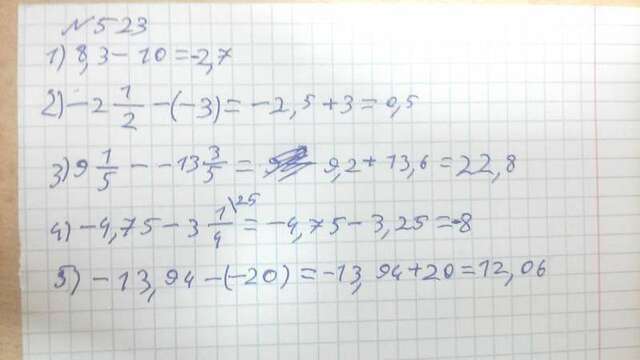 №523
1) 8,3 - 10 = -2,7
2) - 2 1/2 - (-3) = -2,5 + 3 = 0,5
3) 9 1/5 - -13 3/5 = 9,2 + 13,6 = 22,8
4) -4,75 - 3 1\25/4 = -4,75 - 3,25 = -8
5) - 13,94 - (-20) = -13,94 + 20 = 12,06